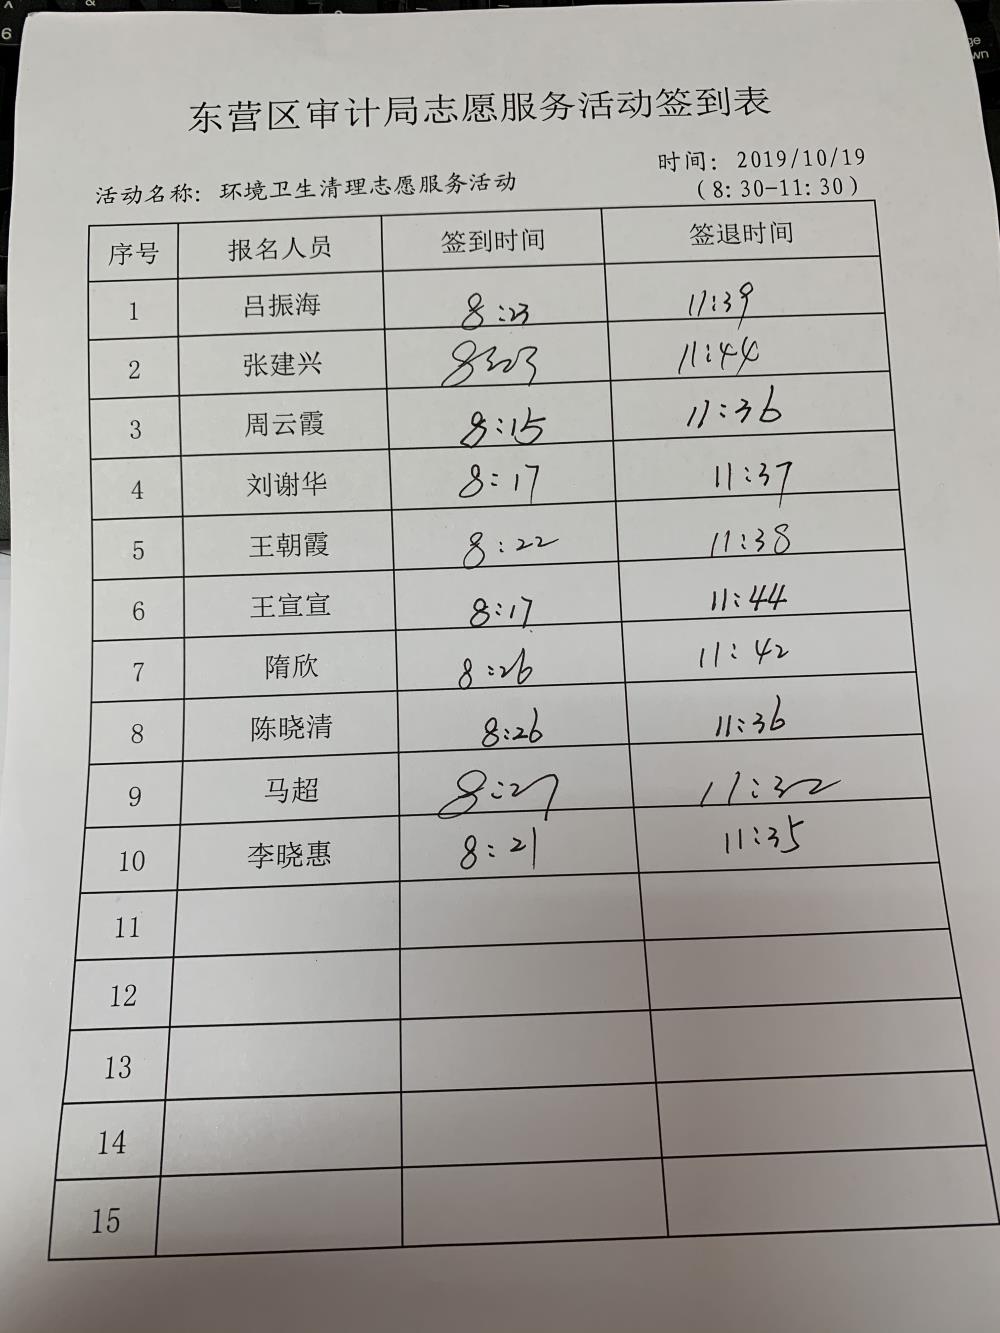 东营区审计局志愿服务活动签到表
时间：2019/10/19
活动名称：环境卫生清理志愿服务活动
（8：30-11：30）
序号 报名人员 签到时间 签退时间
1 吕振海 8:23 11:39
2 张建兴 11:44
3 周云霞 8:15 11:36
4 刘谢华 8:17 11:37
5 王朝霞 8:22 11:38
6 王宣宣 8:17 11:44
7 隋欣 8:26 11:42
8 陈晓清 8:26 11:36
9 马超 8:27 11:32
10 李晓惠 8:21 11:35
11
12
13
14
15